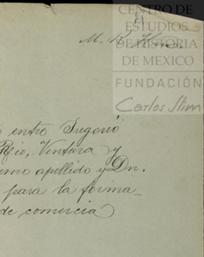 CENTRO DE
ESTUDIOS
DE HISTORIA
DE MEXICO
FUNDACIÓN
Carlos Slim
M. R.
entre Gregorio
Rejo, Ventura y
mismo apellido y Dn.
para la forma-
de comercia